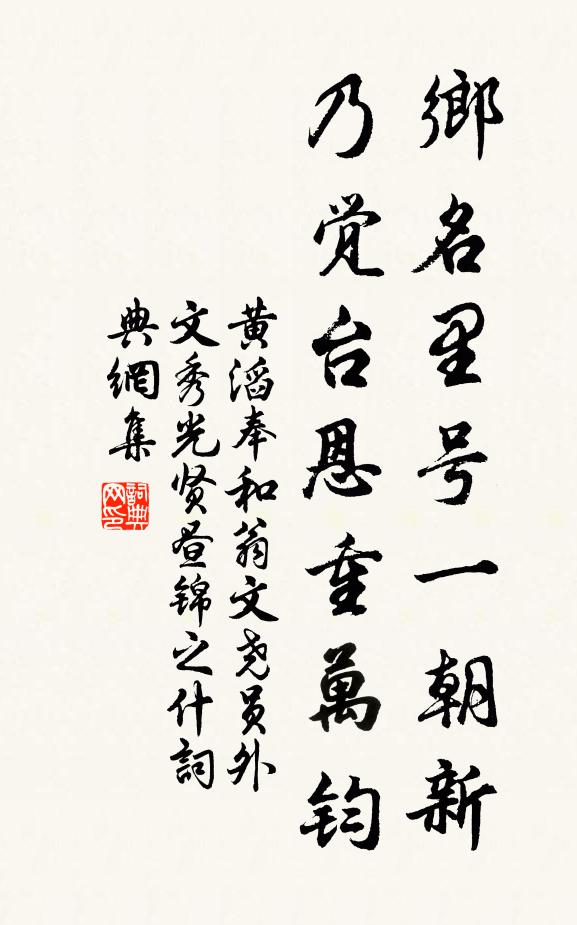 鄉名里号一朝新
乃觉台恩重萬钧
黄滔奉和翁文尧员外
文秀光贤昼锦之什詞
典網集
詞典
网印